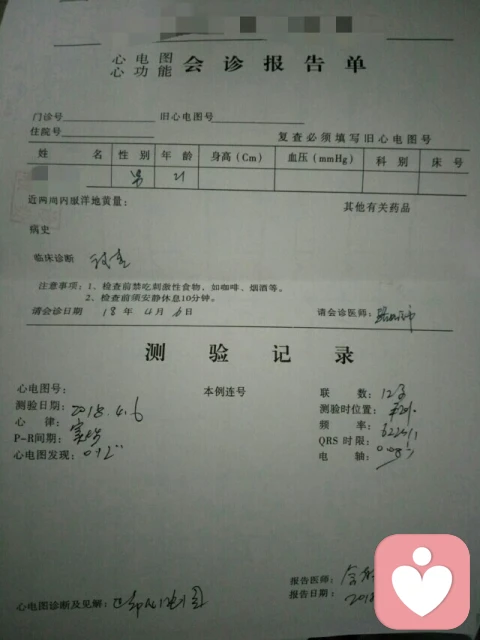 心电图
心功能 会诊报告单
门诊号 旧心电图号
住院号 复查必须填写旧心电图号
姓 名 性别 年龄 身高(Cm) 血压(mmHg) 科别 床号
男 21
近两周内服洋地黄量: 其他有关药品
病史
临床诊断
注意事项:1、检查前禁吃刺激性食物,如咖啡、烟酒等。
2、检查前须安静休息10分钟。
请会诊日期 18年4月6日 请会诊医师:
测验记录
心电图号: 本例连号 联 数:12
测验日期:2018.4.6 测验时位置:
心 律:窦性 频 率:
P-R间期:0.12" QRS时限:
心电图发现: 电 轴:
报告医师:
心电图诊断及见解:正常心电图 报告日期:201